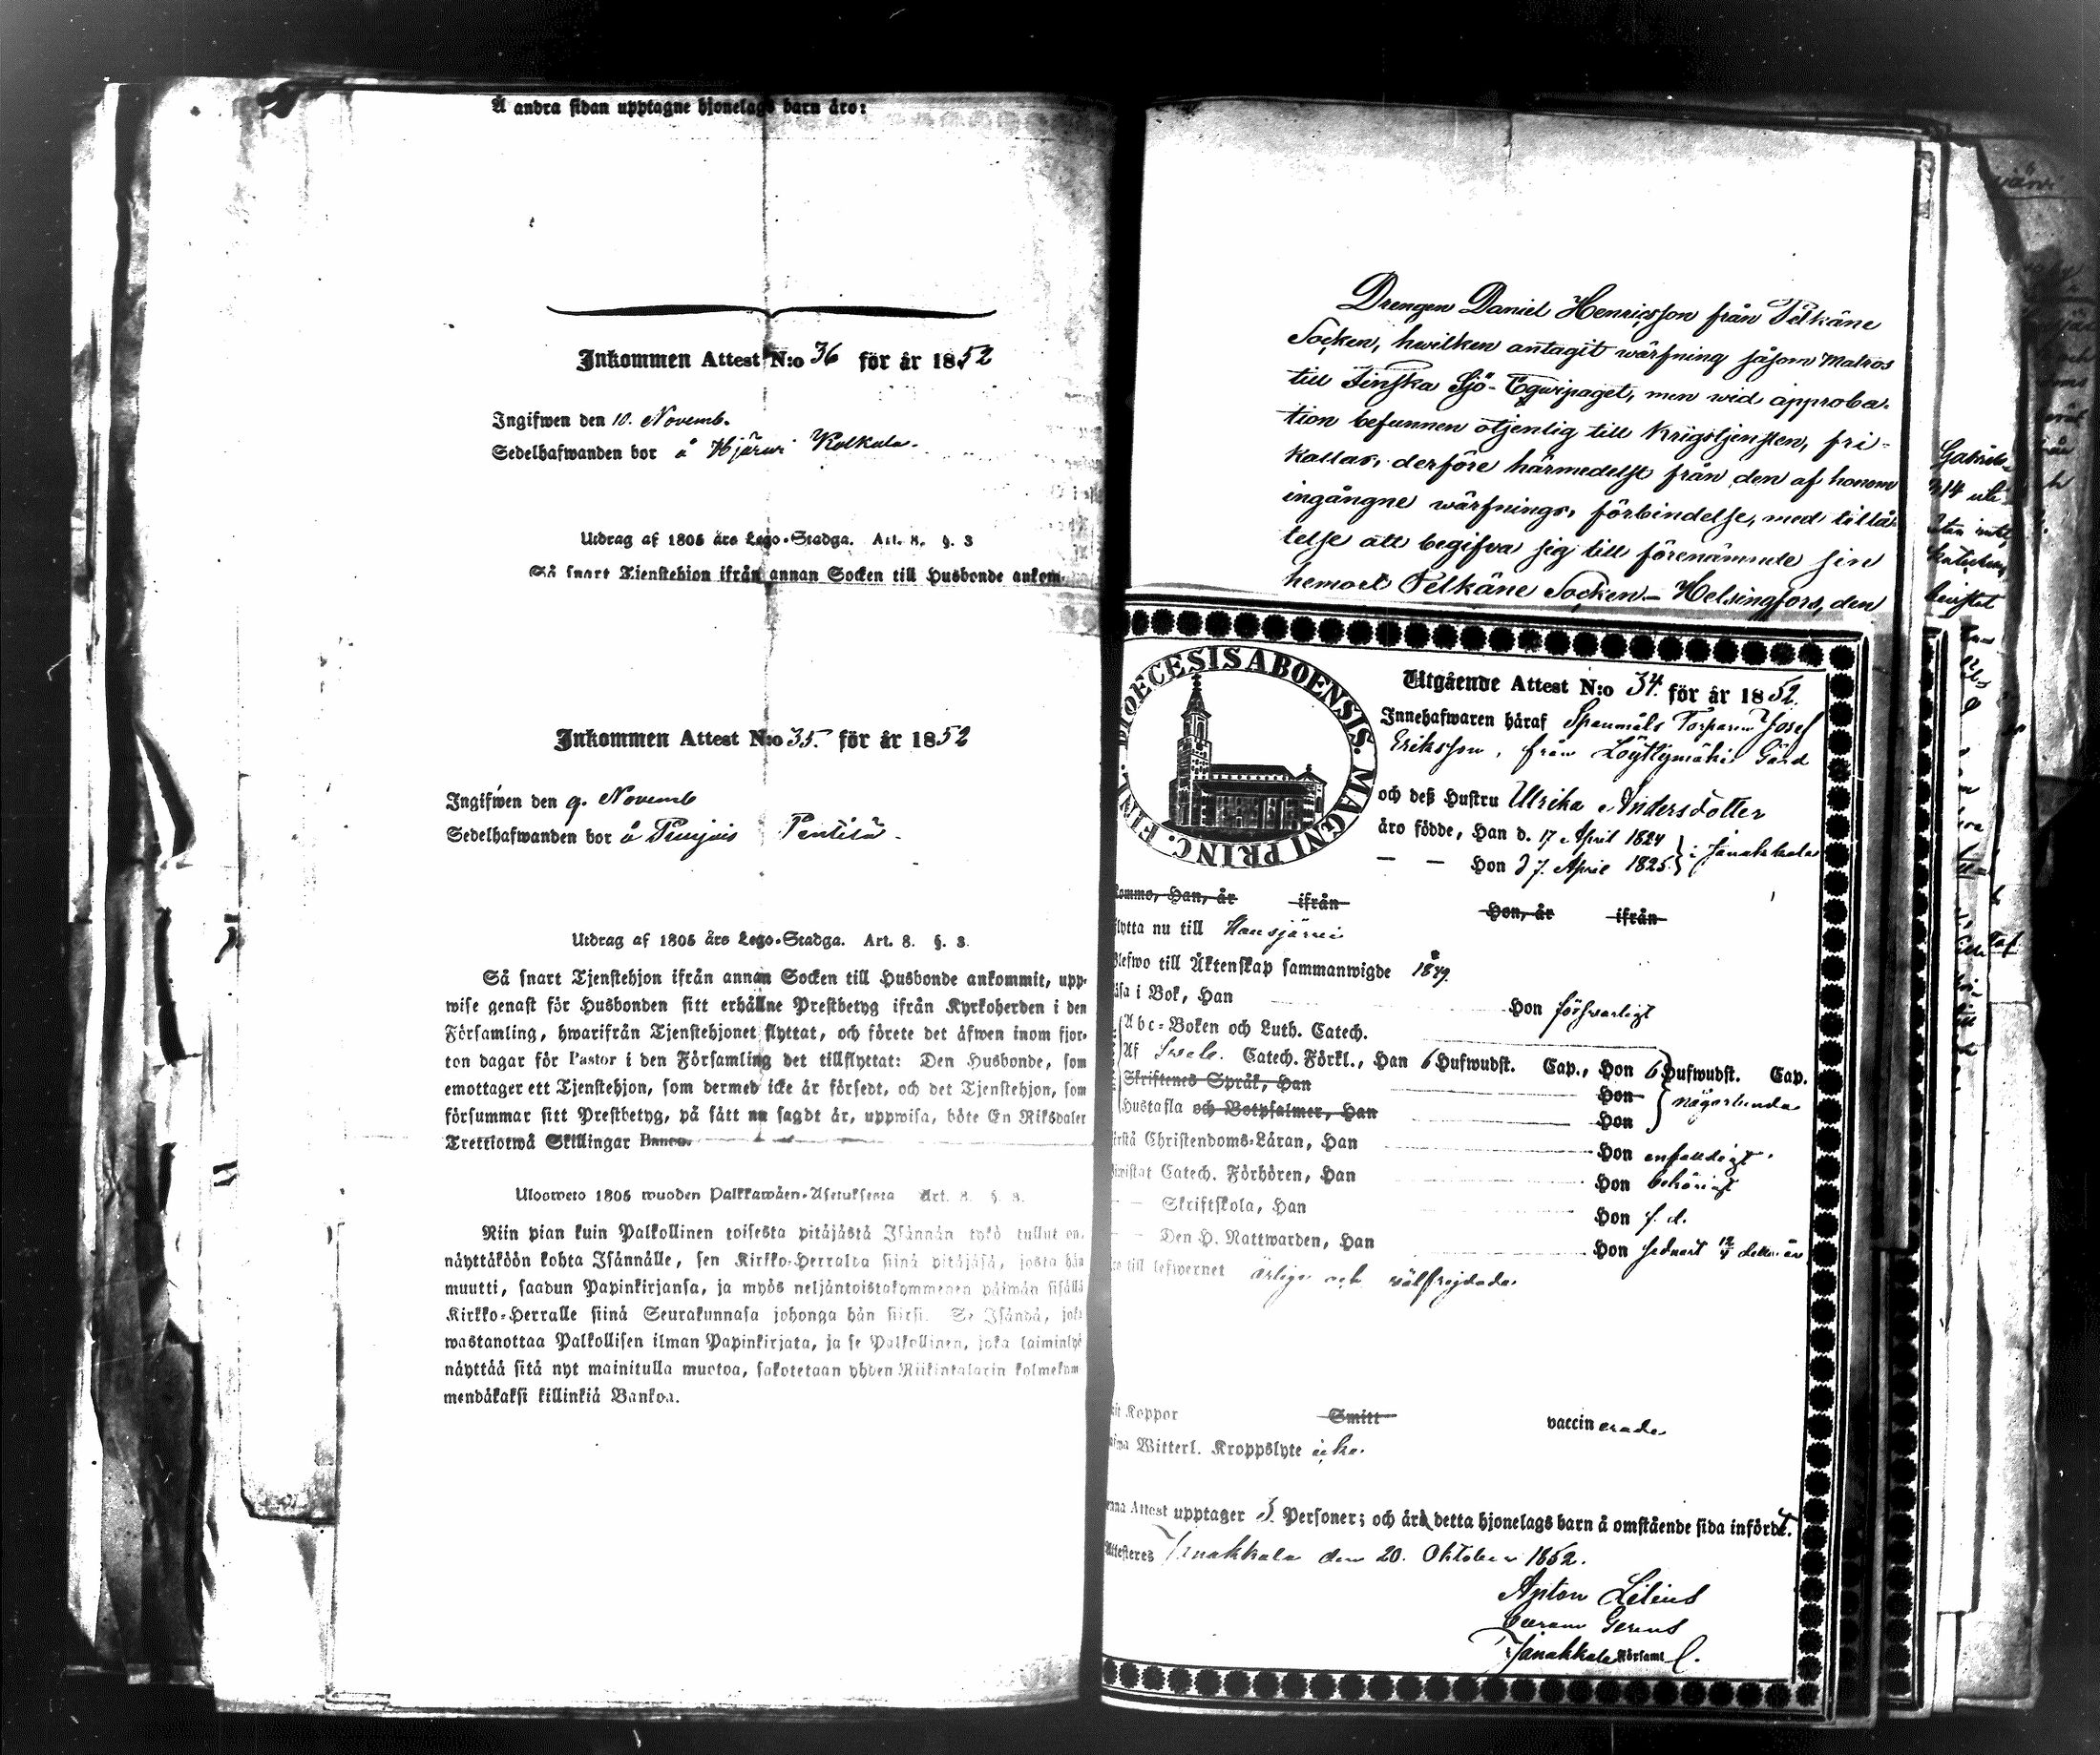 Å andra sidan upptagne hjonelags barn äro:
Inkommen Attest N:o 36 för år 1852
Ingifwen den 10. Novemb.
Sedelhafwanden bor å Hjärvi Kolkala.
Utdrag af 1805 års Lego-Stadga. Art. 8. §. 3
Så snart Tjenstehjon ifrån annan Socken till Husbonde ankom-
Inkommen Attest N:o 35. för år 1852
Ingifwen den 9. Novemb
Sedelhafwanden bor å Pentilä
Utdrag af 1805 års Lego-Stadga. Art. 8. §. 3.
Så snart Tjenstehjon ifrån annan Socken till Husbonde ankommit, upp-
wise genast för Husbonden sitt erhållne Prestbetyg ifrån Kyrkoherden i den
Församling, hwarifrån Tjenstehjonet flyttat, och förete det äfwen inom fjor-
ton dagar för Pastor i den Församling det tillflyttat: Den Husbonde, som
emottager ett Tjenstehjon, som dermed icke är försedt, och det Tjenstehjon, som
försummar sitt Prestbetyg, på sätt nu sagdt är, uppwisa, böte En Riksdaler
Trettiotwå Skillingar Banco.
Ulosweto 1805 wuoden Palkkawäen-Asetuksesta Art. 8. §. 3.
Niin pian kuin Palkollinen toisesta pitäjästä Isännän tykö tullut on,
näyttäköön kohta Isännälle, sen Kirkko-Herralda siinä pitäjäsä, josta hän
muutti, saadun Papinkirjansa, ja myös neljäntoistakymmenen päiwän sisällä
Kirkko-Herralle siinä Seurakunnasa johonga hän siirsi. Se Isändä, joka
wastanottaa Palkollisen ilman Papinkirjata, ja se Palkollinen, joka laiminlyö
näyttää sitä nyt mainitulla muotoa, sakotetaan yhden Riikintalarin kolmekym
mendäkaksi killinkiä Bankoa.
Drengen Daniel Henricsson från Pelkäne
Socken, hwilken antagit wärfning såsom Matros
till Finska Sjö-Eqvipaget, men wid approba-
tion befunnen otjenlig till Krigstjensten, fri-
kallas, derföre härmedelst från den af honom
ingångne wärfnings, förbindelse, med tillå-
telse att begifva sig till förenämnde sin
hemort Pelkäne Socken.- Helsingfors, den
DIOECESIS ABOENSIS. MAGNI PRINC. FINL.
Utgående Attest N:o 34. för år 1852.
Innehafwaren häraf Spanmåls Torparen Josef
Eriksson, från Löyttymäki Gård
och deß Hustru Ulrika Andersdotter
äro födde, Han d. 17 April 1824
— — Hon d 7. April 1825. } i Janakkala
kommo, Han, år ifrån Hon, år ifrån
flytta nu till Hausjärvi
Blefwo till Äktenskap sammanwigde 1849.
läsa i Bok, Han Hon försvarligt
Abc-Boken och Luth. Catech.
Af Catech. Förkl., Han 6 Hufwudst. Cap., Hon 6 Hufwudst. Cap.
Skriftenes Språk, Han Hon } någorlunda
Hustafla och Botpsalmer, Han Hon
förstå Christendoms-Läran, Han Hon enfaldigt.
bewistat Catech. Förhören, Han Hon behörigt
— — Skriftskola, Han Hon s. d.
— — Den H. Nattwarden, Han Hon senast
äro till lefwernet ärlige och välfrejdade.
haft Koppor Smitt vaccinerade
hafwa Witterl. Kroppslyte icke.
Denna Attest upptager 3 Personer; och är detta hjonelags barn å omstående sida infördt.
Attesteres Janakkala den 20. Oktober 1852.
Anton Lilius
Curam Gerens
i Janakkala Församl.
Gabriels